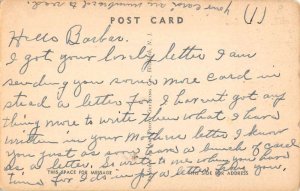 your card are
POST CARD
Hello Barbar.
I got your lovely letter I am
sending you some more card in
stead a letter for I havent got any
thing more to write then what I have
written in your Mothers letter I know
you just as soon have a bunch of card
as a letter. So write to me when you have
time for I do enjoy a letter from you.
THIS SPACE FOR MESSAGE
ADDRESS